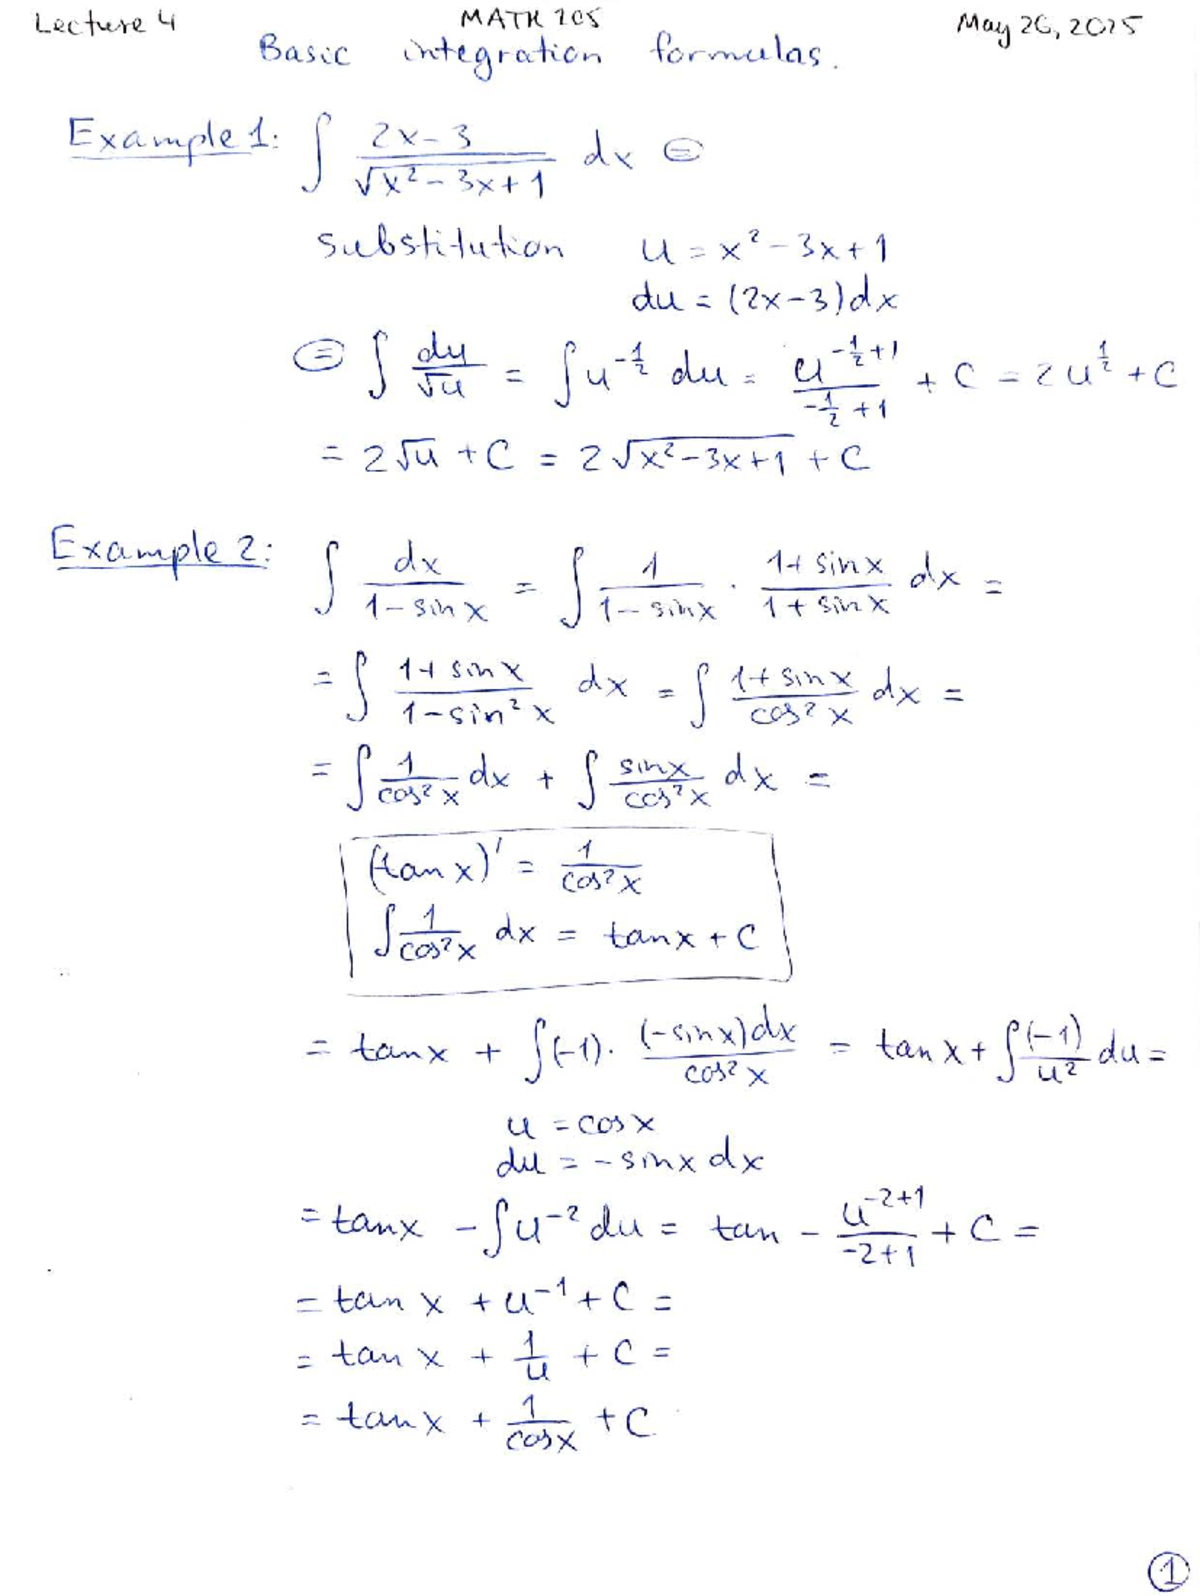 Lecture 4 MATH 205 May 26, 2025
Basic integration formulas.
Example 1: ∫ (2x-3)/√(x²-3x+1) dx ⊜
substitution u = x²-3x+1
du = (2x-3)dx
⊜ ∫ du/√u = ∫ u^(-1/2) du = u^(-1/2+1)/(-1/2+1) + C = 2u^(1/2) + C
= 2√u + C = 2√(x²-3x+1) + C
Example 2: ∫ dx/(1-sinx) = ∫ 1/(1-sinx) · (1+sinx)/(1+sinx) dx =
= ∫ (1+sinx)/(1-sin²x) dx = ∫ (1+sinx)/(cos²x) dx =
= ∫ 1/(cos²x) dx + ∫ sinx/(cos²x) dx =
(tanx)' = 1/(cos²x)
∫ 1/(cos²x) dx = tanx + C
= tanx + ∫(-1)· (-sinx)dx/(cos²x) = tanx + ∫ (-1)/u² du =
u = cosx
du = -sinx dx
= tanx - ∫u⁻² du = tan - u^(-2+1)/(-2+1) + C =
= tanx + u⁻¹ + C =
= tanx + 1/u + C =
= tanx + 1/cosx + C
1